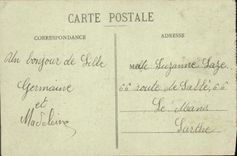 CARTE POSTALE
CORRESPONDANCE
ADRESSE
Un bonjour de Sillé
Germaine
et
Madeleine
Melle Suzanne Laze
66 route de Sablé 66
Le Mans
Sarthe